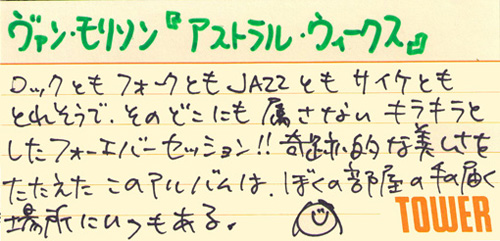 ヴァン・モリソン『アストラル・ウィークス』
ロックともフォークともJAZZともサイケとも
とれそうで、そのどこにも属さない キラキラと
したフォーエバーセッション!! 奇跡的な美しさを
たたえたこのアルバムは、ぼくの部屋の手の届く
場所にいつもある。
TOWER